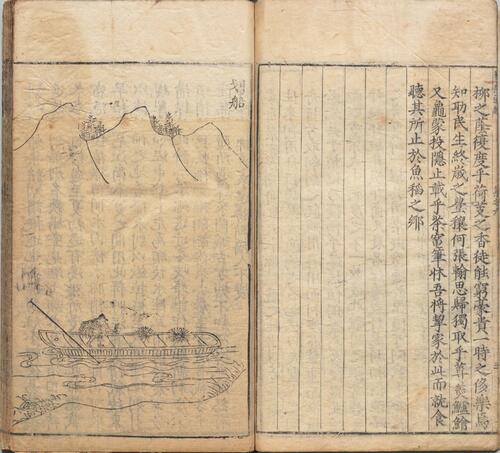 柳之蔭復度乎荷芰之香徒能窮豪貴一時之侈樂焉
知助民生終歲之豐穰何張翰思歸獨取乎蓴羮鱸鱠
又龜蒙投隱止載乎茶竈筆牀吾將挈家於此而就食
聽其所止於魚稻之鄉
划船